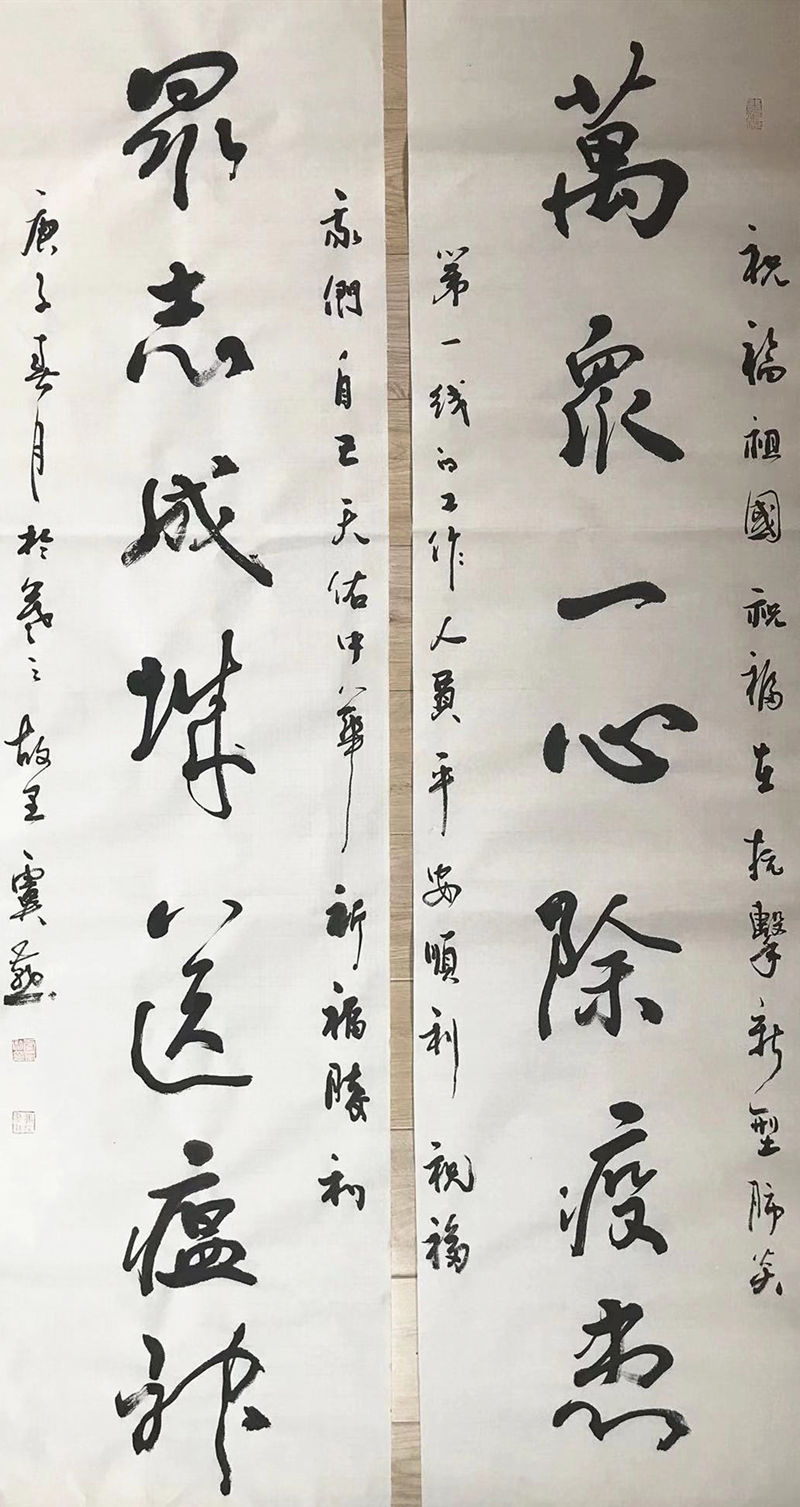 祝福祖國祝福在抗擊新型肺炎
萬眾一心除疫患
第一线的工作人員平安順利祝福
我們自己天佑中華祈福勝利
眾志成城送瘟神
庚子春月於羲之故里虞